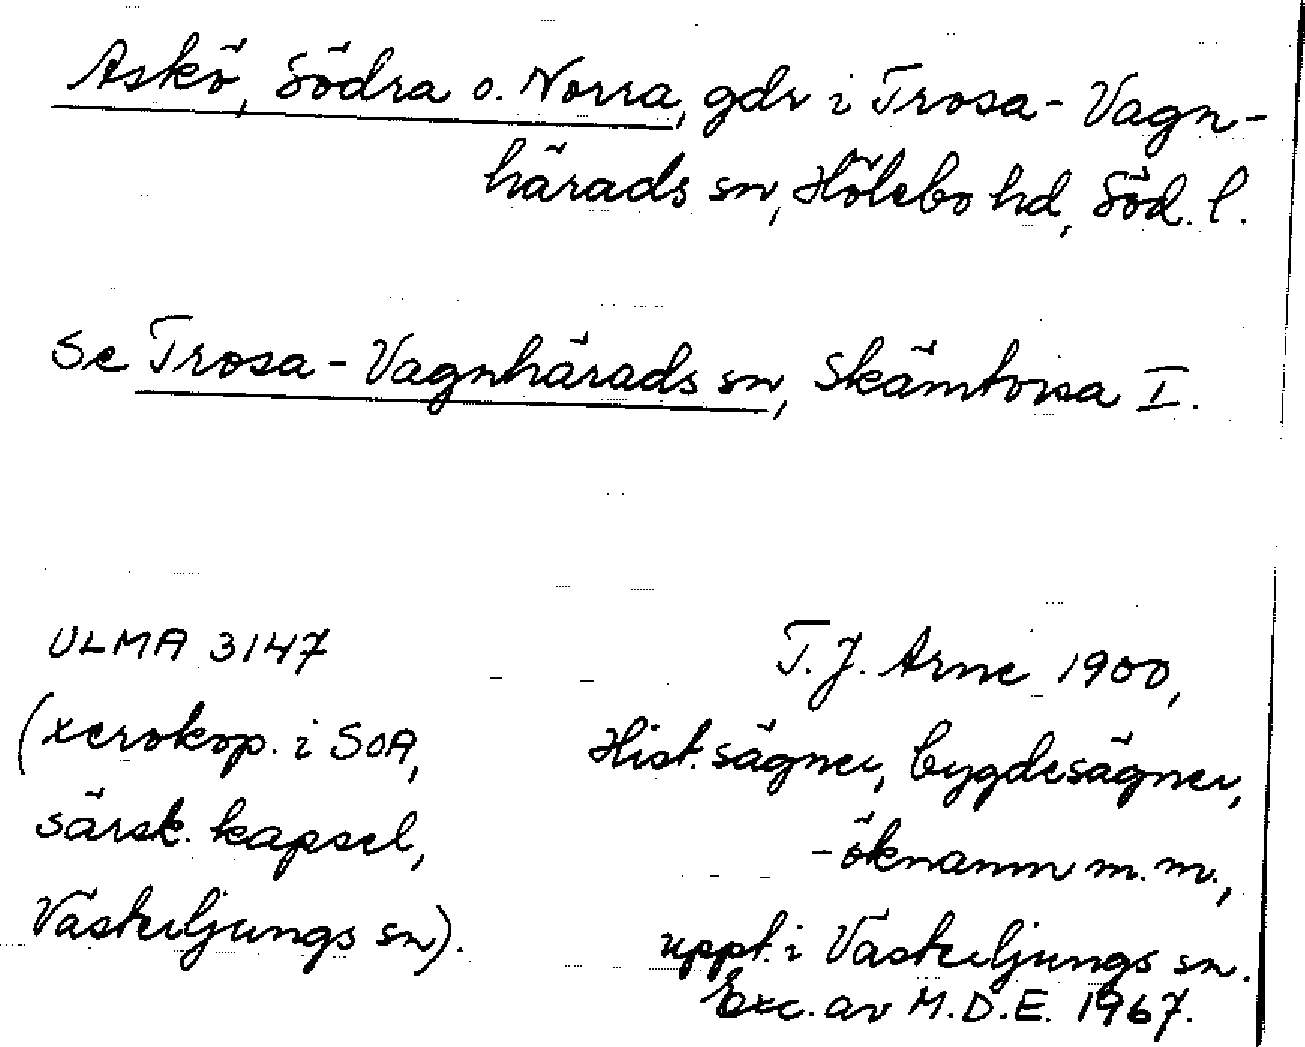 Askö, Södra o. Norra, gdr i Trosa-Vagn-
härads sn, Hölebo hd, Söd. l.
Se Trosa-Vagnhärads sn, Skämtvisa I.
ULMA 3147
(xerokop. i SOA,
särsk. kapsel,
Västerljungs sn).
T.J. Arne 1900,
Hist. sägner, bygdesägner,
-öknamn m.m.,
uppt. i Västerljungs sn.
Exc. av M.D.E. 1967.